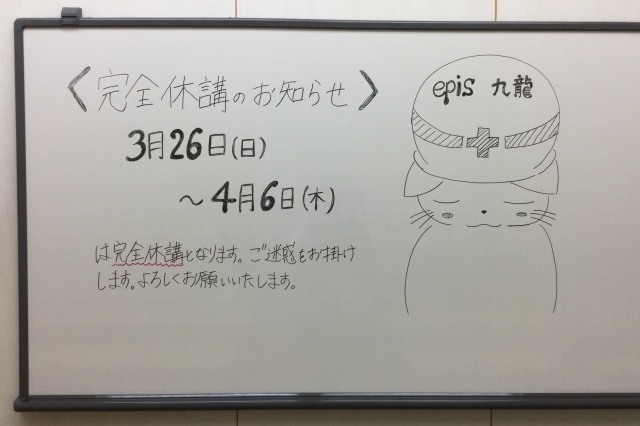 〈完全休講のお知らせ〉
3月26日(日)
～4月6日(木)
は完全休講となります。ご迷惑をお掛け
します。よろしくお願いいたします。
epis 九龍